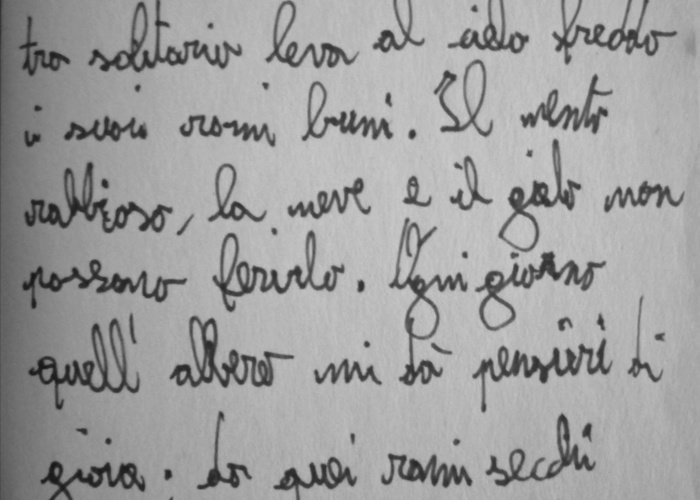 tro solitario leva al cielo freddo
i suoi rami bruni. Il vento
rabbioso, la neve e il gelo non
possono ferirlo. Ogni giorno
quell' albero mi dà pensieri di
gioia. da quei rami secchi